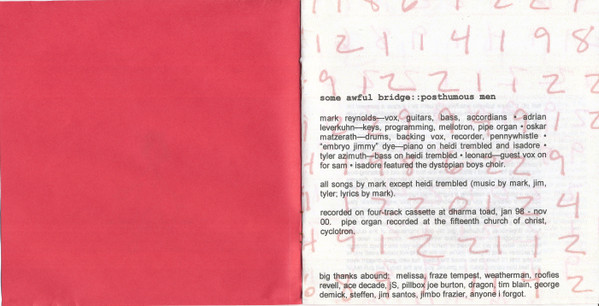 1 2 1 1 4 1 9 8
9 1 2 2 1 1 2
some awful bridge::posthumous men
mark reynolds—vox, guitars, bass, accordians • adrian
leverkuhn—keys, programming, mellotron, pipe organ • oskar
matzerath—drums, backing vox, recorder, pennywhistle •
"embryo jimmy" dye—piano on heidi trembled and isadore •
tyler azimuth—bass on heidi trembled • leonard—guest vox on
for sam • isadore featured the dystopian boys choir.
all songs by mark except heidi trembled (music by mark, jim,
tyler; lyrics by mark).
recorded on four-track cassette at dharma toad, jan 98 - nov
00. pipe organ recorded at the fifteenth church of christ,
cyclotron.
9 1 2 2 1 1 2
big thanks abound: melissa, fraze tempest, weatherman, roofies
revell, ace decade, jS, pillbox joe burton, dragon, tim blain, george
demick, steffen, jim santos, jimbo frazier, anyone i forgot.